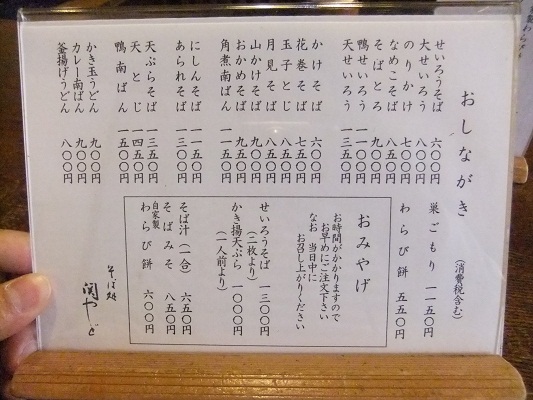 おしながき
せいろうそば 六〇〇円
大せいろう 八〇〇円
のりかけ 七〇〇円
なめこそば 八五〇円
そばとろ 九〇〇円
鴨せいろう 一一五〇円
天せいろう 一三五〇円
かけそば 六〇〇円
花巻そば 七五〇円
玉子とじ 八五〇円
月見そば 八五〇円
山かけそば 九〇〇円
おかめそば 九五〇円
角煮南ばん 一一五〇円
にしんそば 一一五〇円
あられそば 一三〇〇円
天ぷらそば 一三五〇円
天とじ 一四五〇円
鴨南ばん 一一五〇円
かき玉うどん 九〇〇円
カレー南ばん 九〇〇円
釜揚げうどん 八〇〇円
(消費税含む)
巣ごもり 一一五〇円
わらび餅 五五〇円
おみやげ
お時間がかかりますので
お早めにご注文下さい
なお 当日中に
お召し上がりください
せいろうそば 一三〇〇円
(二枚より)
かき揚天ぷら 一〇〇〇円
(一人前より)
そば汁(一合) 六五〇円
そばみそ 八五〇円
自家製
わらび餅 六〇〇円
そば処